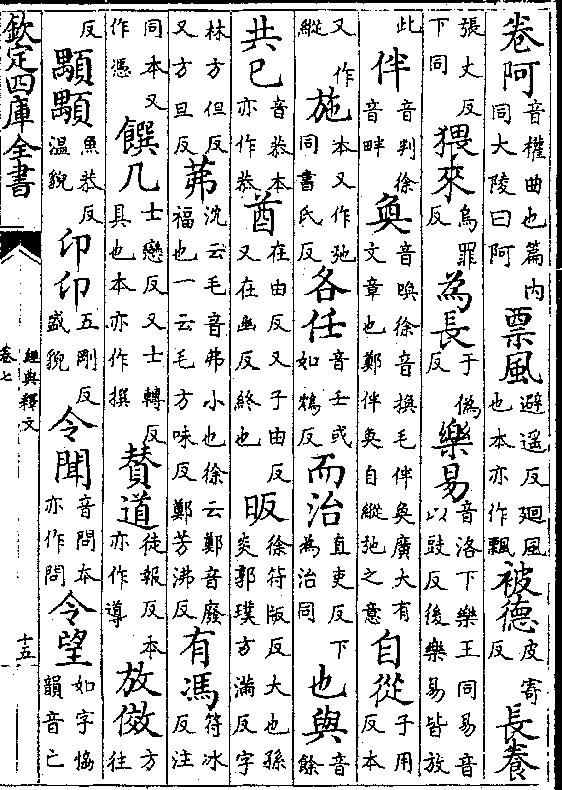 卷阿音權曲也篇内同大陵曰阿票風避遥反廻風也本亦作飄被德皮寄反長養
張丈反下同猥來烏罪反為長于偽反樂易音洛下樂王同易音以豉反後樂易皆放
此伴音判徐音畔奐音喚徐音換毛伴奐廣大有文章也鄭伴奐自縱弛之意自從子用反本
又作縱施本又作弛同書氏反各任音壬或如鴆反而治直吏反下為治同也與音餘
共已音恭本亦作恭酋在由反又子由反又在幽反終也昄徐符版反大也孫炎郭璞方滿反字
林方但反又方旦反茀沈云毛音弗小也徐云鄭音廢福也一云毛方味反鄭芳沸反有馮符冰反注
同本又作憑饌几士戀反又士轉反具也本亦作撰賛道徒報反本亦作導放傚方往
反顒顒魚恭反溫貌卬卬五剛反盛貌令聞音問本亦作問令望如字協韻音亡
欽定四庫全書
經典釋文
卷七
十五